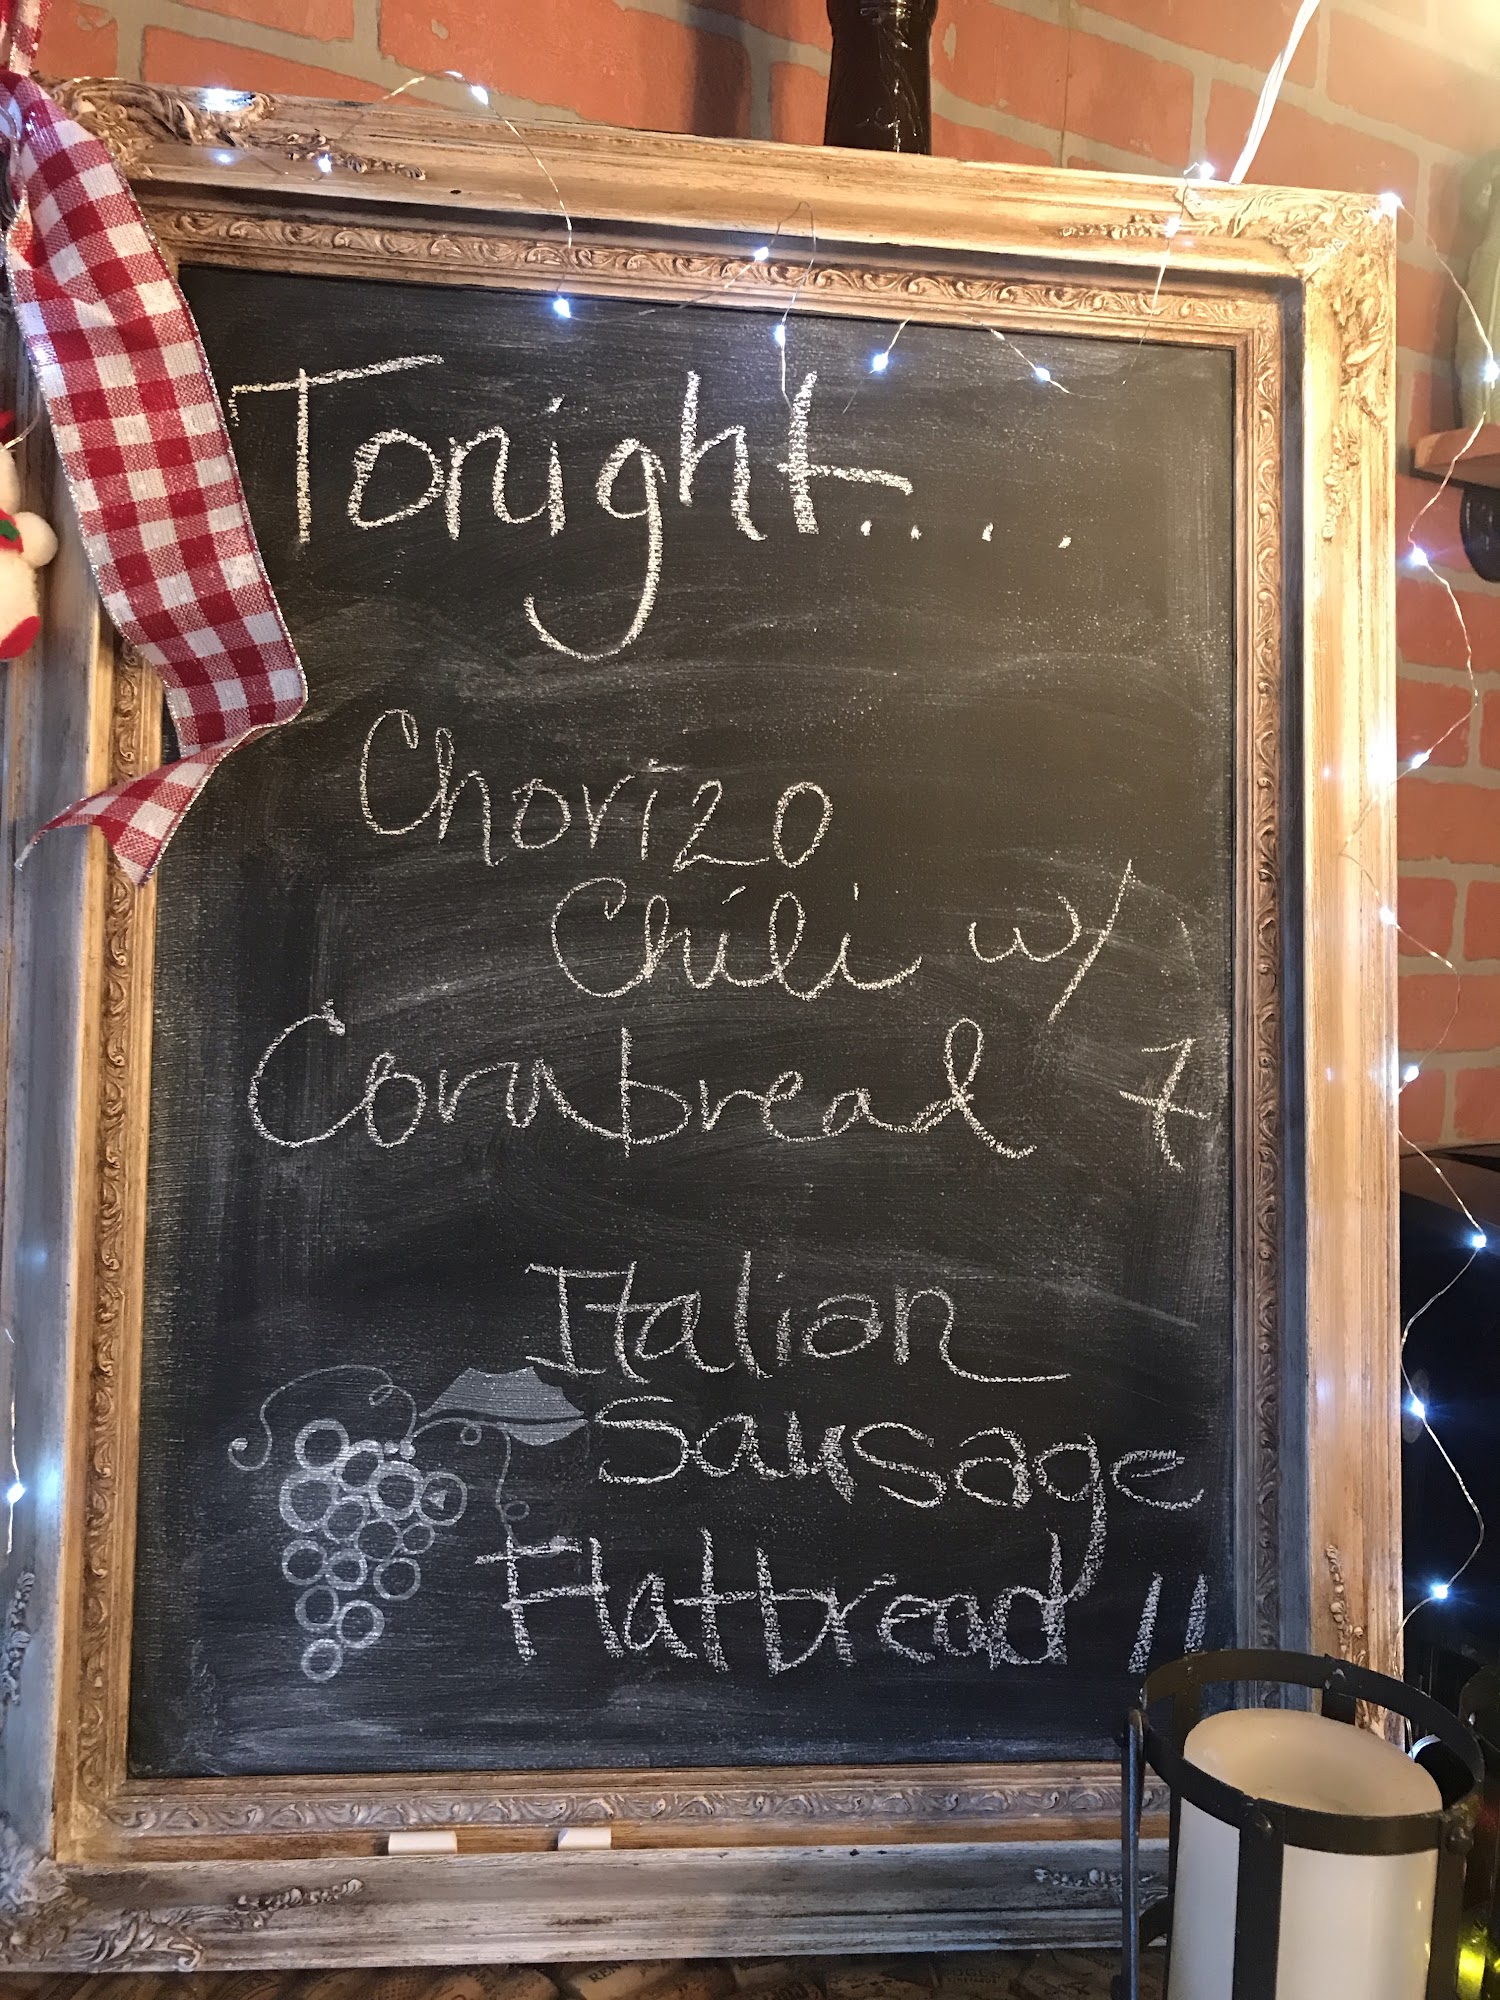 Tonight....
Chorizo
Chili w/
Cornbread +
Italian
Sausage
Flatbread !!